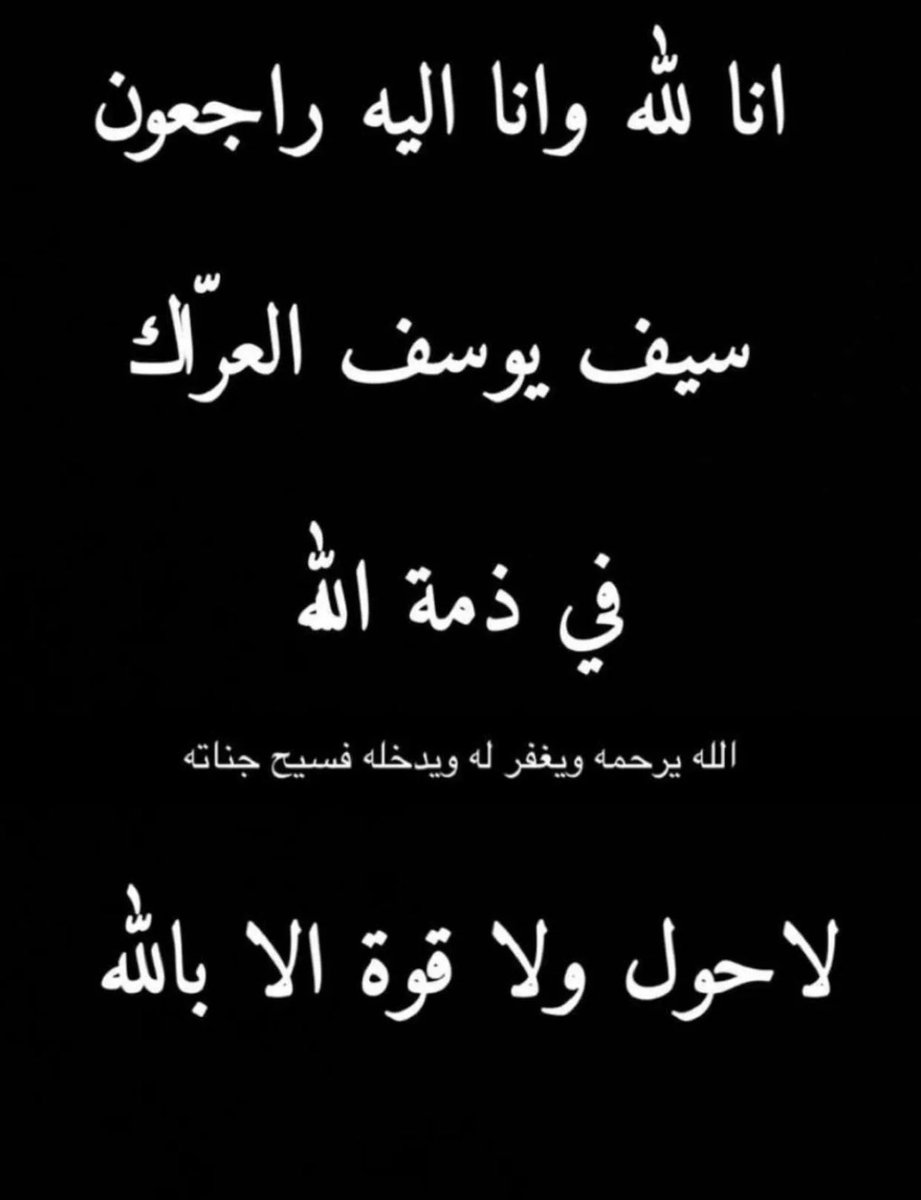 انا لله وانا اليه راجعون
سيف يوسف العرّاك
في ذمة الله
الله يرحمه ويغفر له ويدخله فسيح جناته
لاحول ولا قوة الا بالله